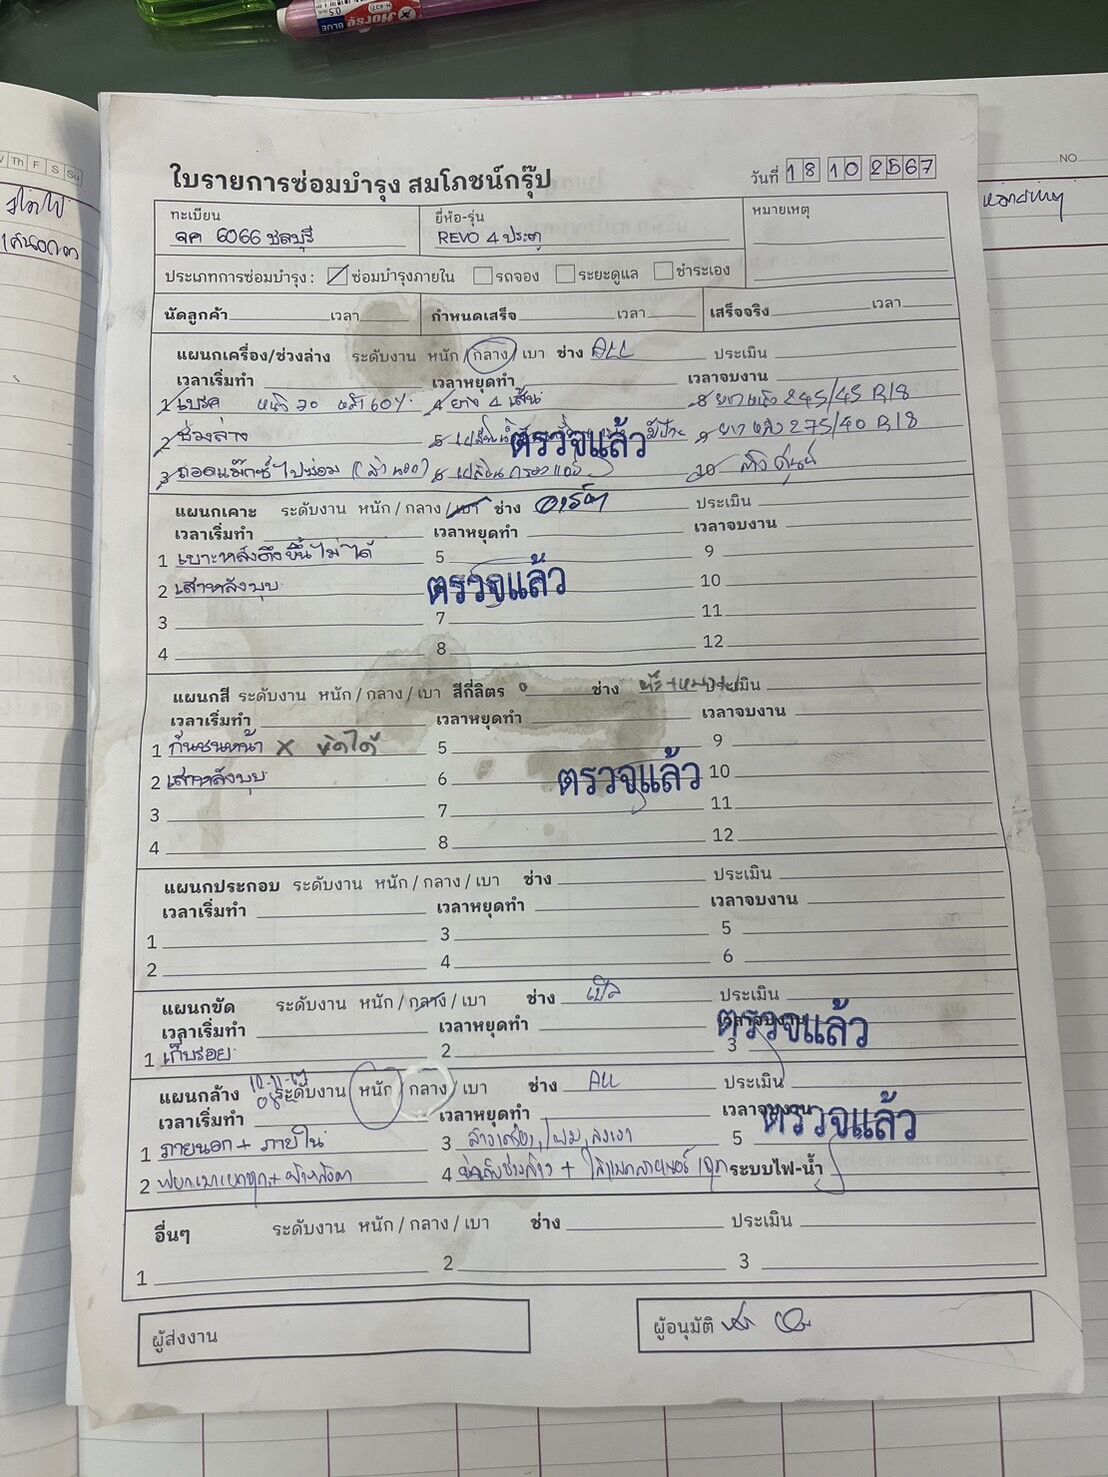 Horse
H-407
0.5
BLUE
Th F S Su
NO
ใบรายการซ่อมบำรุง สมโภชน์กรุ๊ป
วันที่ 18 10 2567
ทะเบียน ยี่ห้อ-รุ่น หมายเหตุ
6066 ชลบุรี REVO 4 ประตู
ประเภทการซ่อมบำรุง : ซ่อมบำรุงภายใน รถจอง ระยะดูแล ชำระเอง
นัดลูกค้า เวลา กำหนดเสร็จ เวลา เสร็จจริง เวลา
แผนกเครื่อง/ช่วงล่าง ระดับงาน หนัก / กลาง / เบา ช่าง ALL ประเมิน
เวลาเริ่มทำ เวลาหยุดทำ เวลาจบงาน
1 เบรค หน้า 70 หลัง 60% 4 ยาง 4 เส้น 8 ยางหน้า 245/45 R18
2 ช่วงล่าง 5 9 ยางหลัง 275/40 R18
ตรวจแล้ว
3 ถอดแม๊กซ์ไปซ่อม 6 เปลี่ยนกรองแอร์ 10 ตั้งศูนย์
แผนกเคาะ ระดับงาน หนัก / กลาง / เบา ช่าง ประเมิน
เวลาเริ่มทำ เวลาหยุดทำ เวลาจบงาน
1 เบาะหลังดึงขึ้นไม่ได้ 5 9
2 เสาหลังบุบ ตรวจแล้ว 10
3 7 11
4 8 12
แผนกสี ระดับงาน หนัก / กลาง / เบา สีกี่ลิตร ช่าง ประเมิน
เวลาเริ่มทำ เวลาหยุดทำ เวลาจบงาน
1 กันชนหน้า X ขัดได้ 5 9
2 เสาหลังบุบ 6 ตรวจแล้ว 10
3 7 11
4 8 12
แผนกประกอบ ระดับงาน หนัก / กลาง / เบา ช่าง ประเมิน
เวลาเริ่มทำ เวลาหยุดทำ เวลาจบงาน
1 3 5
2 4 6
แผนกขัด ระดับงาน หนัก / กลาง / เบา ช่าง ประเมิน
เวลาเริ่มทำ เวลาหยุดทำ เวลาจบงาน
ตรวจแล้ว
1 เก็บรอย 2 3
แผนกล้าง ระดับงาน หนัก / กลาง / เบา ช่าง ALL ประเมิน
เวลาเริ่มทำ เวลาหยุดทำ เวลาจบงาน
ตรวจแล้ว
1 ภายนอก + ภายใน 3 5
2 4 ระบบไฟ-น้ำ
อื่นๆ ระดับงาน หนัก / กลาง / เบา ช่าง ประเมิน
1 2 3
ผู้ส่งงาน ผู้อนุมัติ